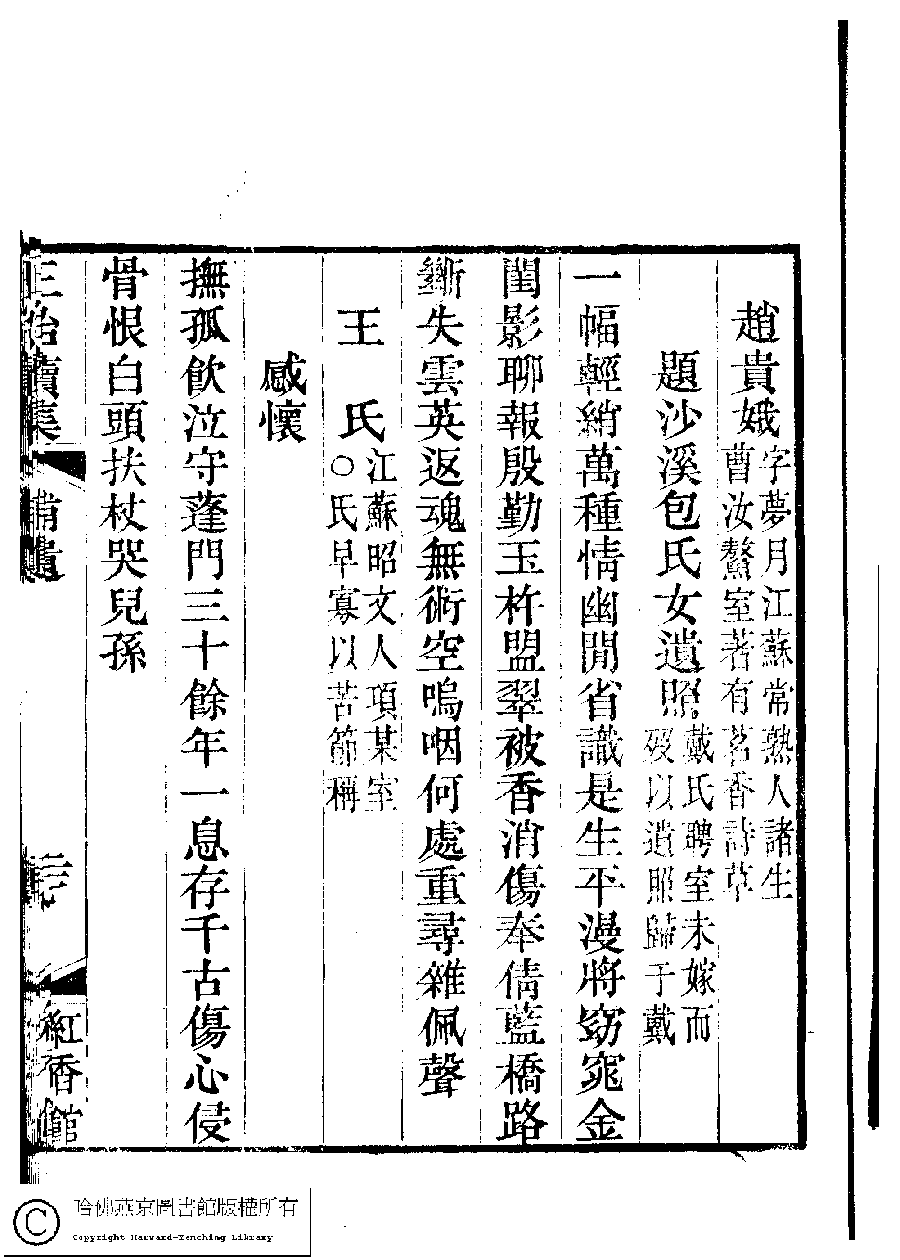 趙貴娥 字夢月江蘇常熟人諸生
曹汝鰲室著有茗香詩草
題沙溪包氏女遺照 戴氏聘室未嫁而
歿以遺照歸于戴
一幅輕綃萬種情幽閒省識是生平漫將窈窕金
閨影聊報殷勤玉杵盟翠被香消傷奉倩藍橋路
斷失雲英返魂無術空嗚咽何處重尋雜佩聲
王 氏 江蘇昭文人項某室
○氏早寡以苦節稱
感懷
撫孤飲泣守蓬門三十餘年一息存千古傷心侵
骨恨白頭扶杖哭兒孫
正始續集 補遺
紅香館
哈佛燕京圖書館版權所有
Copyright Harvard-Yenching Library